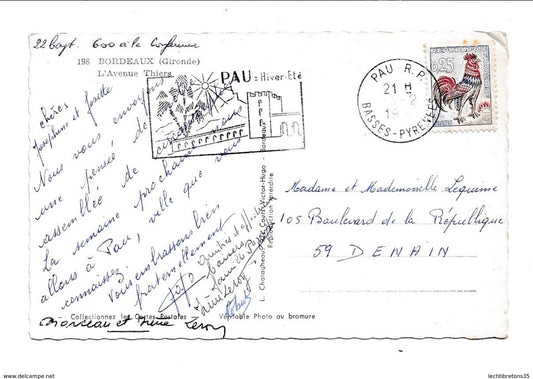 22 Bapt. 600 à la Conférence
198 BORDEAUX (Gironde)
L'Avenue Thiers
chères
Josephine et
Nous vous envoyons
une pensée de
assemblée de
La semaine prochaine nous
allons à Pau, ville que vous
connaissez.
Vous embrassons bien
fraternellement
Marceau et Leroy
Collectionnez les Cartes Postales — Véritable Photo au bromure
L. Chatagneau, Cours Victor-Hugo - Bordeaux
Reproduction interdite
PAU = Hiver-Eté
PAU R.P.
21 H
BASSES-PYRENEES
0,25
Madame et Mademoiselle Lequime
105 Boulevard de la République
59 DENAIN
www.delcampe.net
lechtibretons35